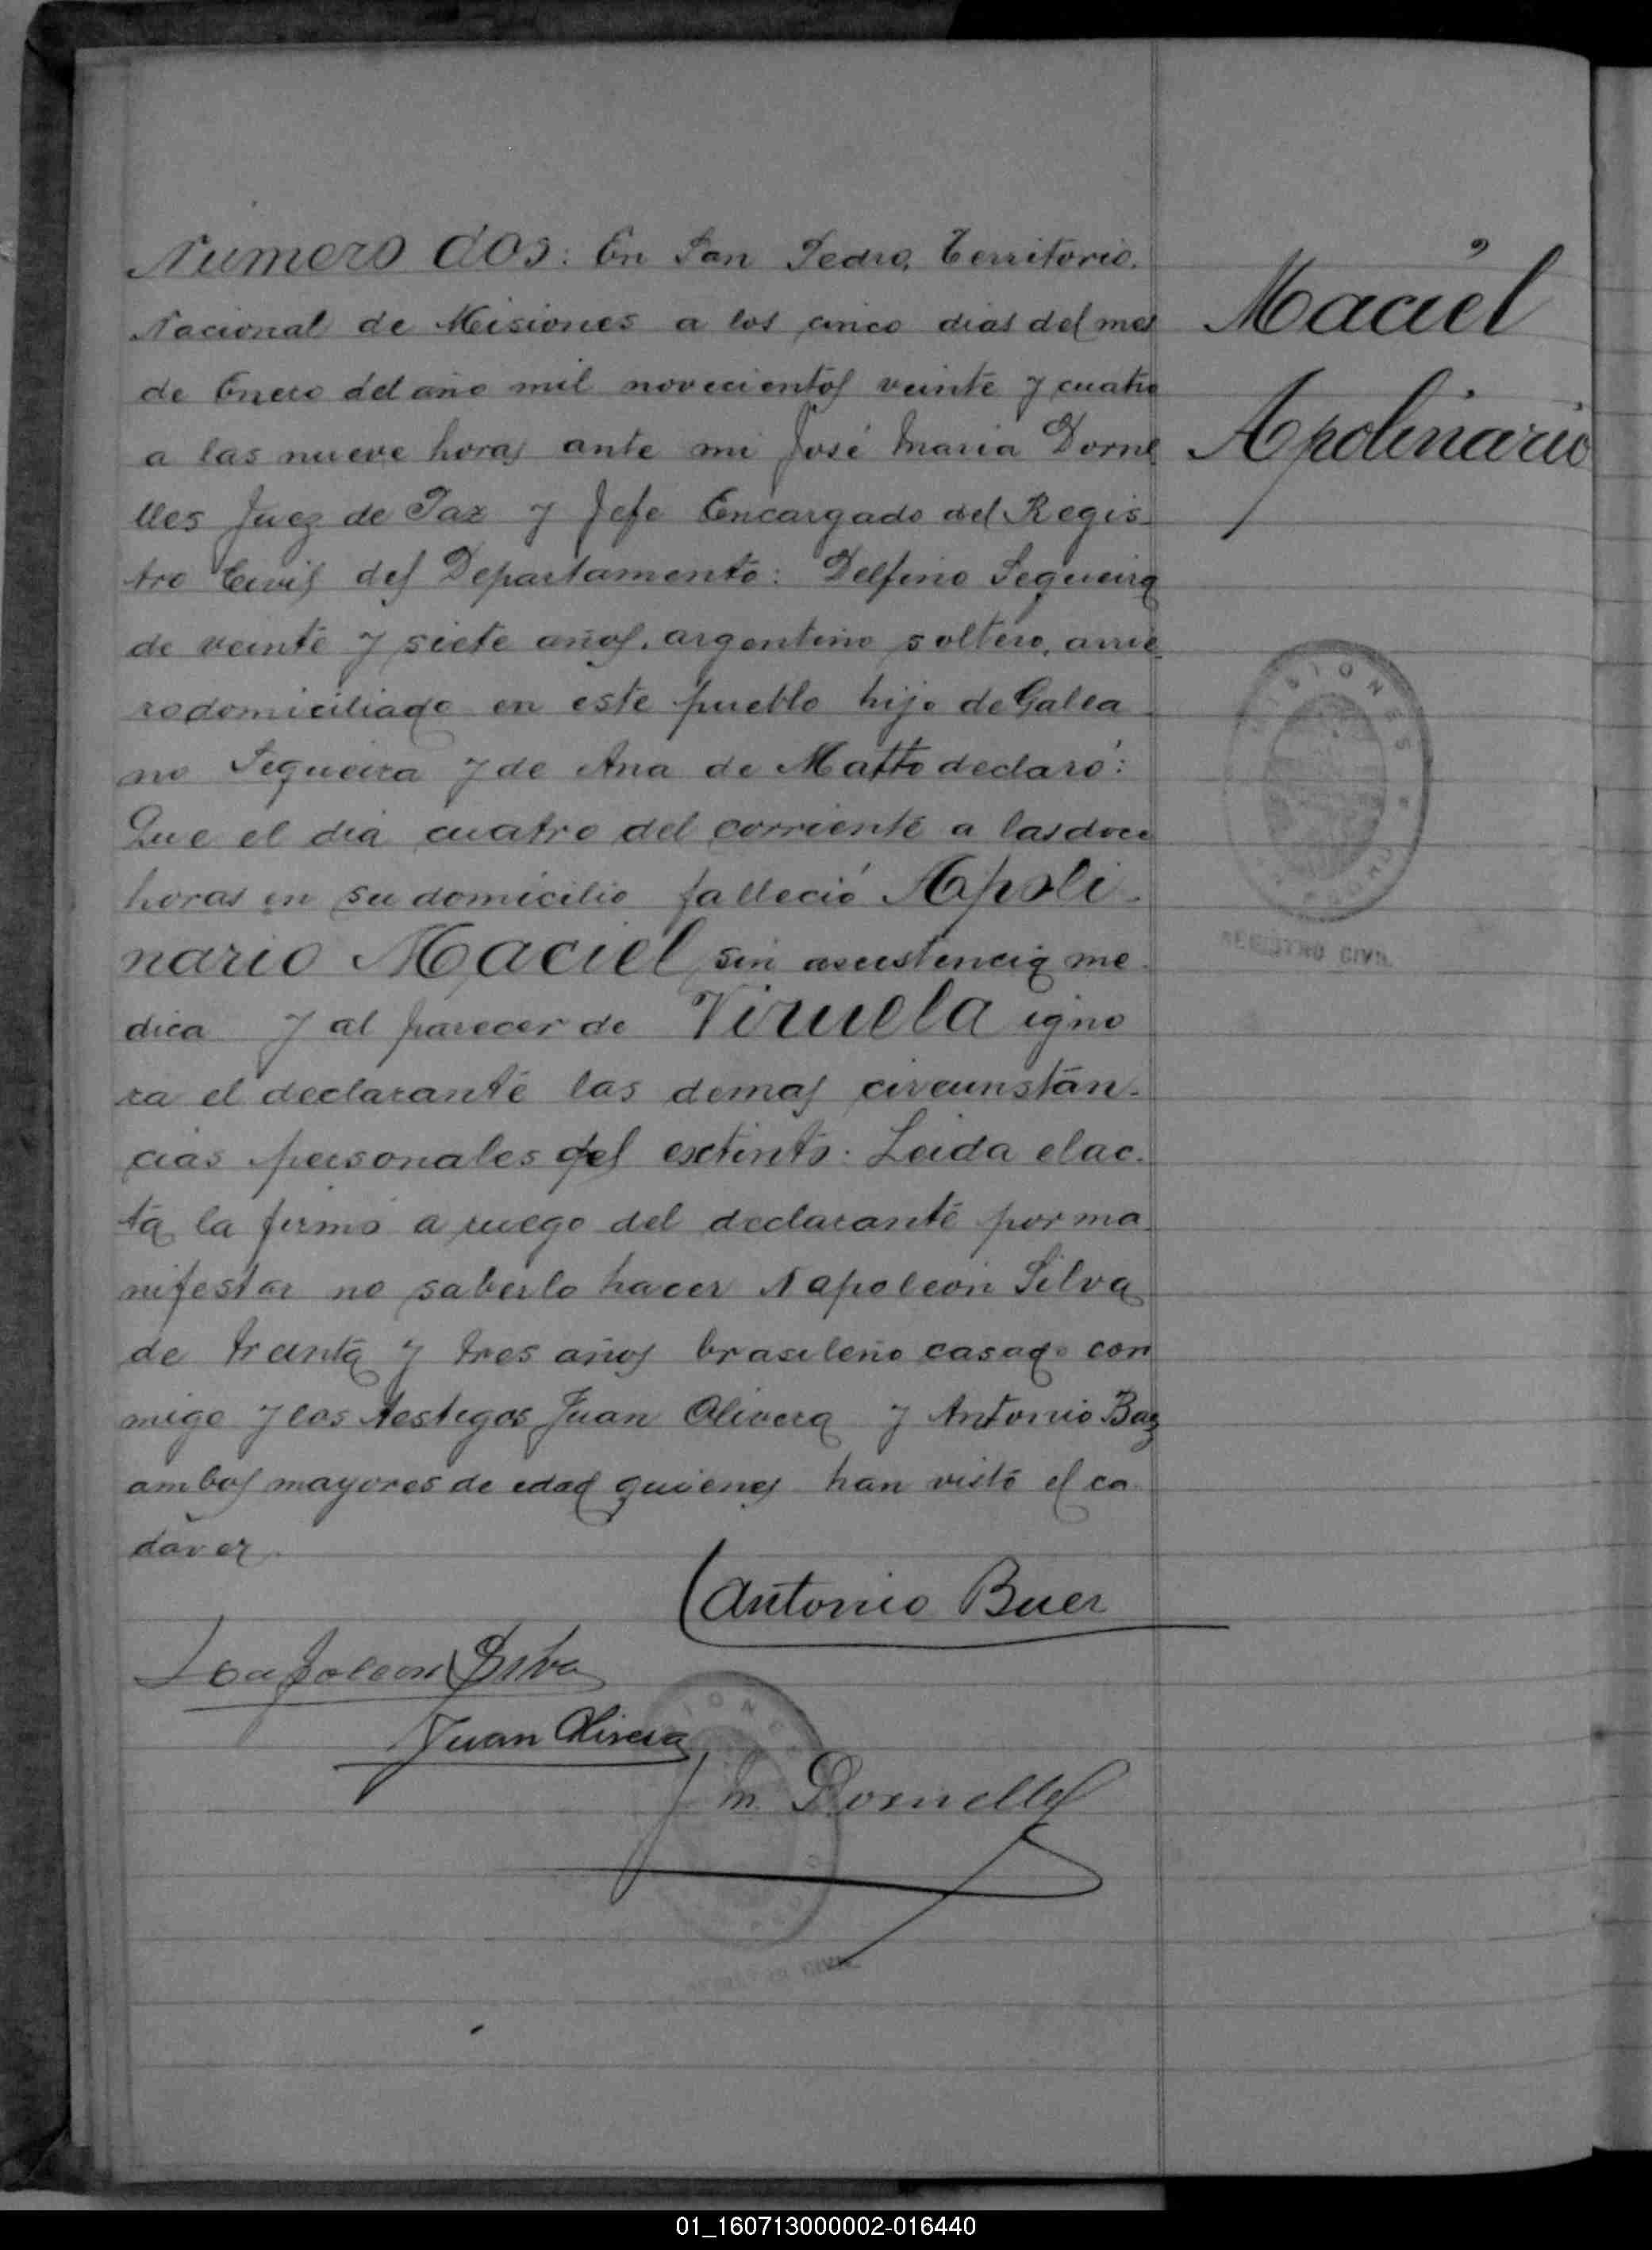 Numero dos: En San Pedro, Territorio.
Nacional de Misiones a los cinco dias del mes
de Enero del año mil novecientos veinte y cuatro
a las nueve horas ante mi José Maria Dorne
lles Juez de Paz y Jefe Encargado del Regis-
tro Civil del Departamento: Delfino Segueira
de veinte y siete años, argentino soltero, arrie
rodomiciliado en este pueblo hijo de Galea
no Segueira y de Ana de Matto declaró:
Que el dia cuatro del corriente a las doce
horas en su domicilio falleció Apoli-
nario Maciel sin asistencia me
dica y al parecer de Viruela igno
ra el declarante las demas circunstan-
cias personales del extinto. Leida el ac-
ta la firmó a ruego del declarante por ma
nifestar no saberlo hacer Napoleon Silva
de treinta y tres años brasileño casado con
migo y los testigos Juan Olivera y Antonio Baz
ambos mayores de edad quienes han visto el ca
daver.
Maciel
Apolinario
MISIONES
REGISTRO CIVIL
Antonio Buer
Napoleon Silva
Juan Olivera
J M. Dornelles
CIVIL
01_160713000002-016440